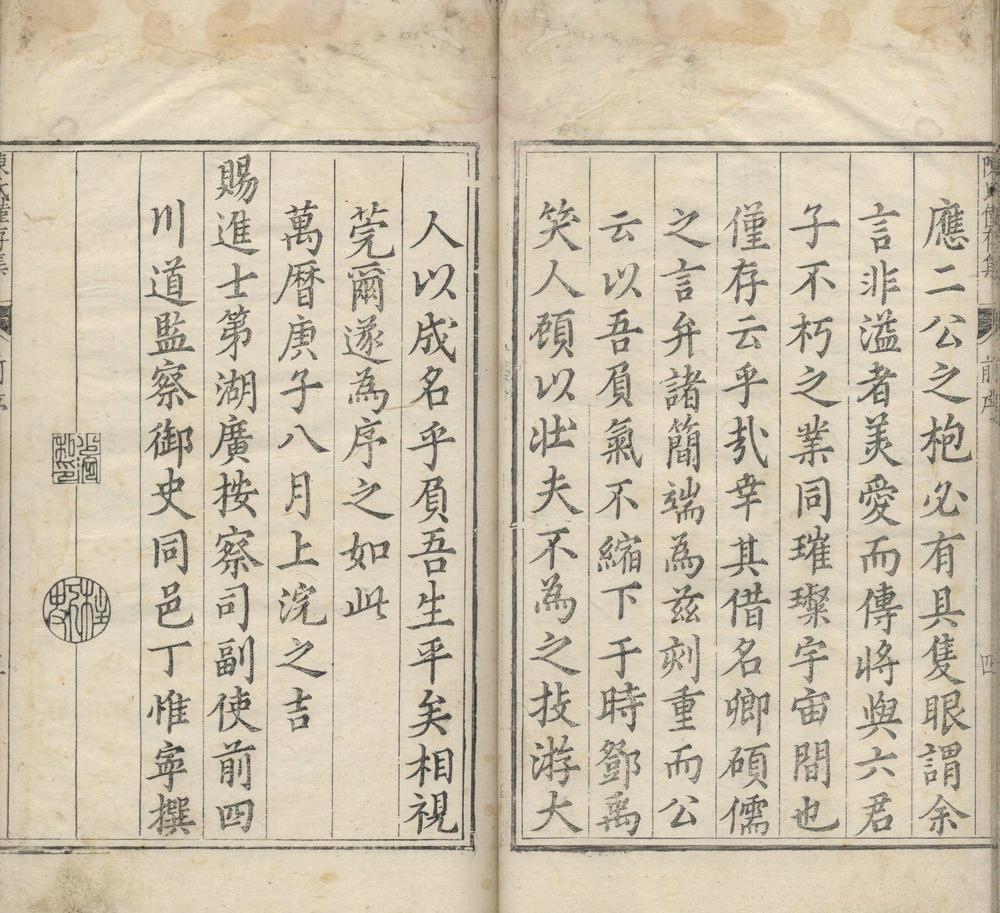 應二公之枹必有具隻眼謂余
言非溢者美愛而傳將與六君
子不朽之業同璀璨宇宙間也
僅存云乎㢤幸其借名卿碩儒
之言弁諸簡端為茲刻重而公
云以吾負氣不縮下于時鄧禹
笑人頋以壯夫不為之技游大
人以成名乎負吾生平矣相視
莞爾遂為序之如此
萬曆庚子八月上浣之吉
賜進士第湖廣按察司副使前四
川道監察御史同邑丁惟寧撰